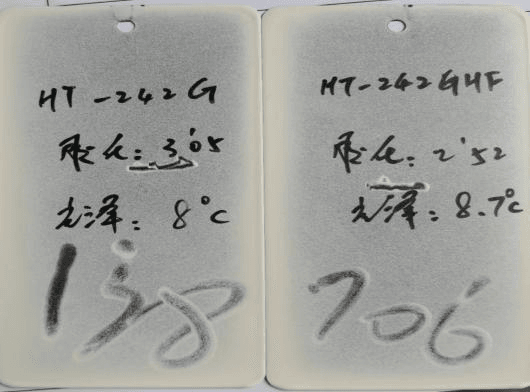 HT-242G
胶化:3'05
光泽:8°C
138
HT-242GHF
胶化:2'52
光泽:8.7°C
706